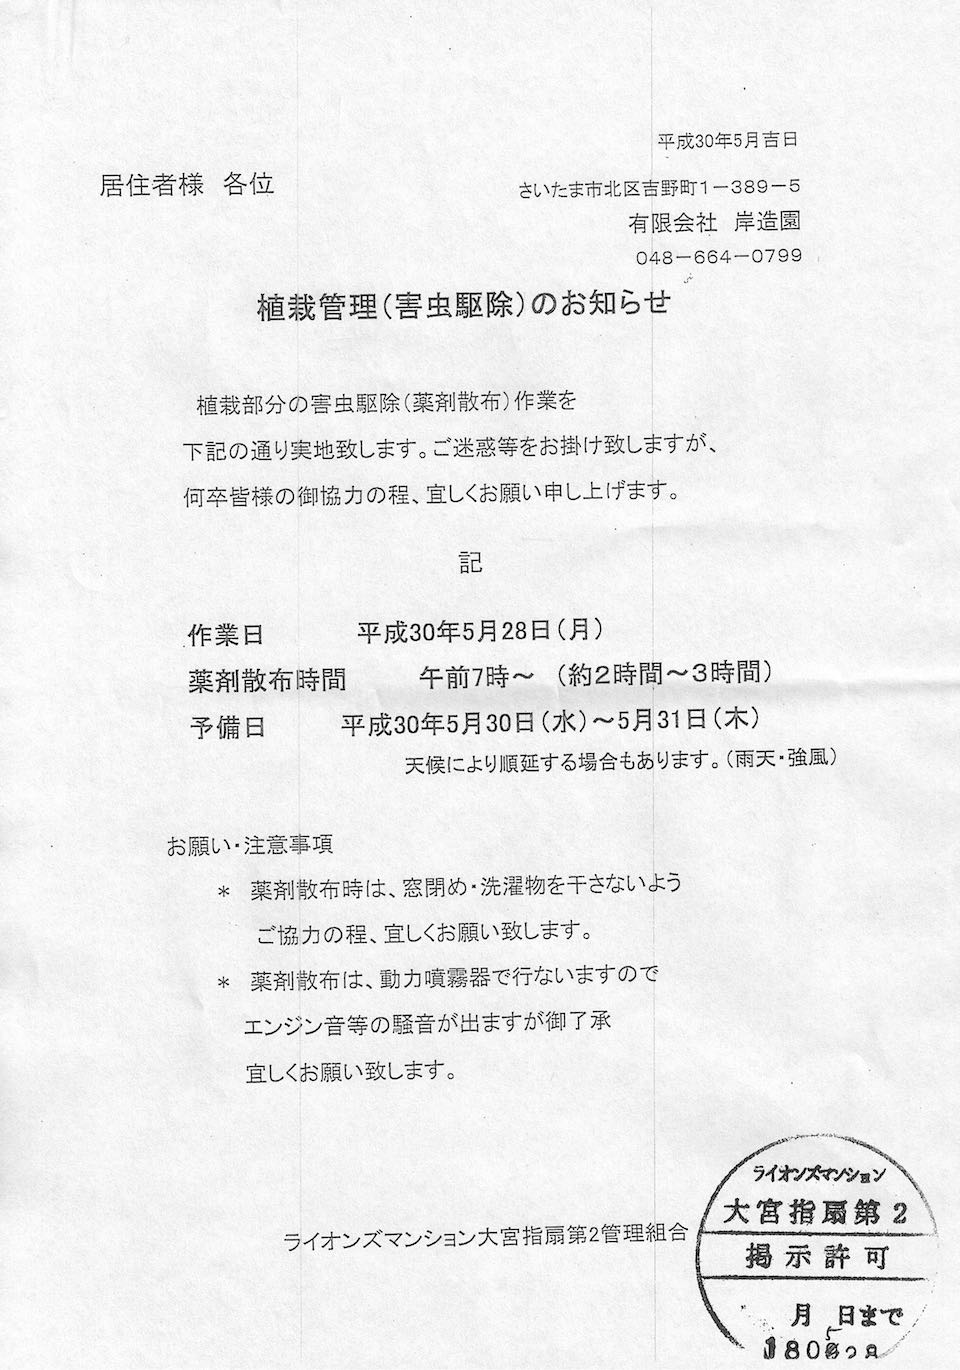 平成30年5月吉日
居住者様 各位
さいたま市北区吉野町1-389-5
有限会社 岸造園
048-664-0799
植栽管理(害虫駆除)のお知らせ
植栽部分の害虫駆除(薬剤散布)作業を
下記の通り実地致します。ご迷惑等をお掛け致しますが、
何卒皆様の御協力の程、宜しくお願い申し上げます。
記
作業日 平成30年5月28日(月)
薬剤散布時間 午前7時~ (約2時間~3時間)
予備日 平成30年5月30日(水)~5月31日(木)
天候により順延する場合もあります。(雨天・強風)
お願い・注意事項
* 薬剤散布時は、窓閉め・洗濯物を干さないよう
ご協力の程、宜しくお願い致します。
* 薬剤散布は、動力噴霧器で行ないますので
エンジン音等の騒音が出ますが御了承
宜しくお願い致します。
ライオンズマンション大宮指扇第2管理組合
ライオンズマンション
大宮指扇第2
掲示許可
月 日まで